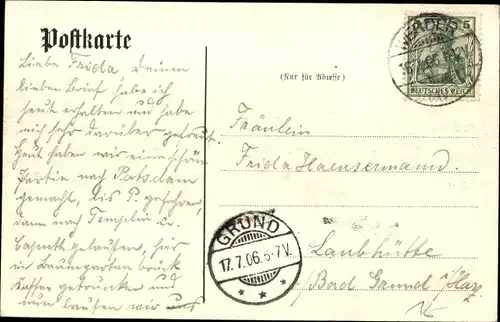 Postkarte
(Nur für Adresse)
Liebe Frida, deinen
lieben Brief habe ich
heut erhalten und habe
mich sehr darüber gefreut.
Heut haben wir eine schöne
Partie nach Potsdam
gemacht, bis P. gefahren,
dann nach Templin u.
Caputh gelaufen, hier
im Baumgarten
Kaffee getrunken und
nun laufen wir
Fräulein
Frida Haensermann.
Laubhütte
Bad Grund i/Harz
WERDER
06
5
DEUTSCHES REICH
GRUND
17.7.06.6-7V.